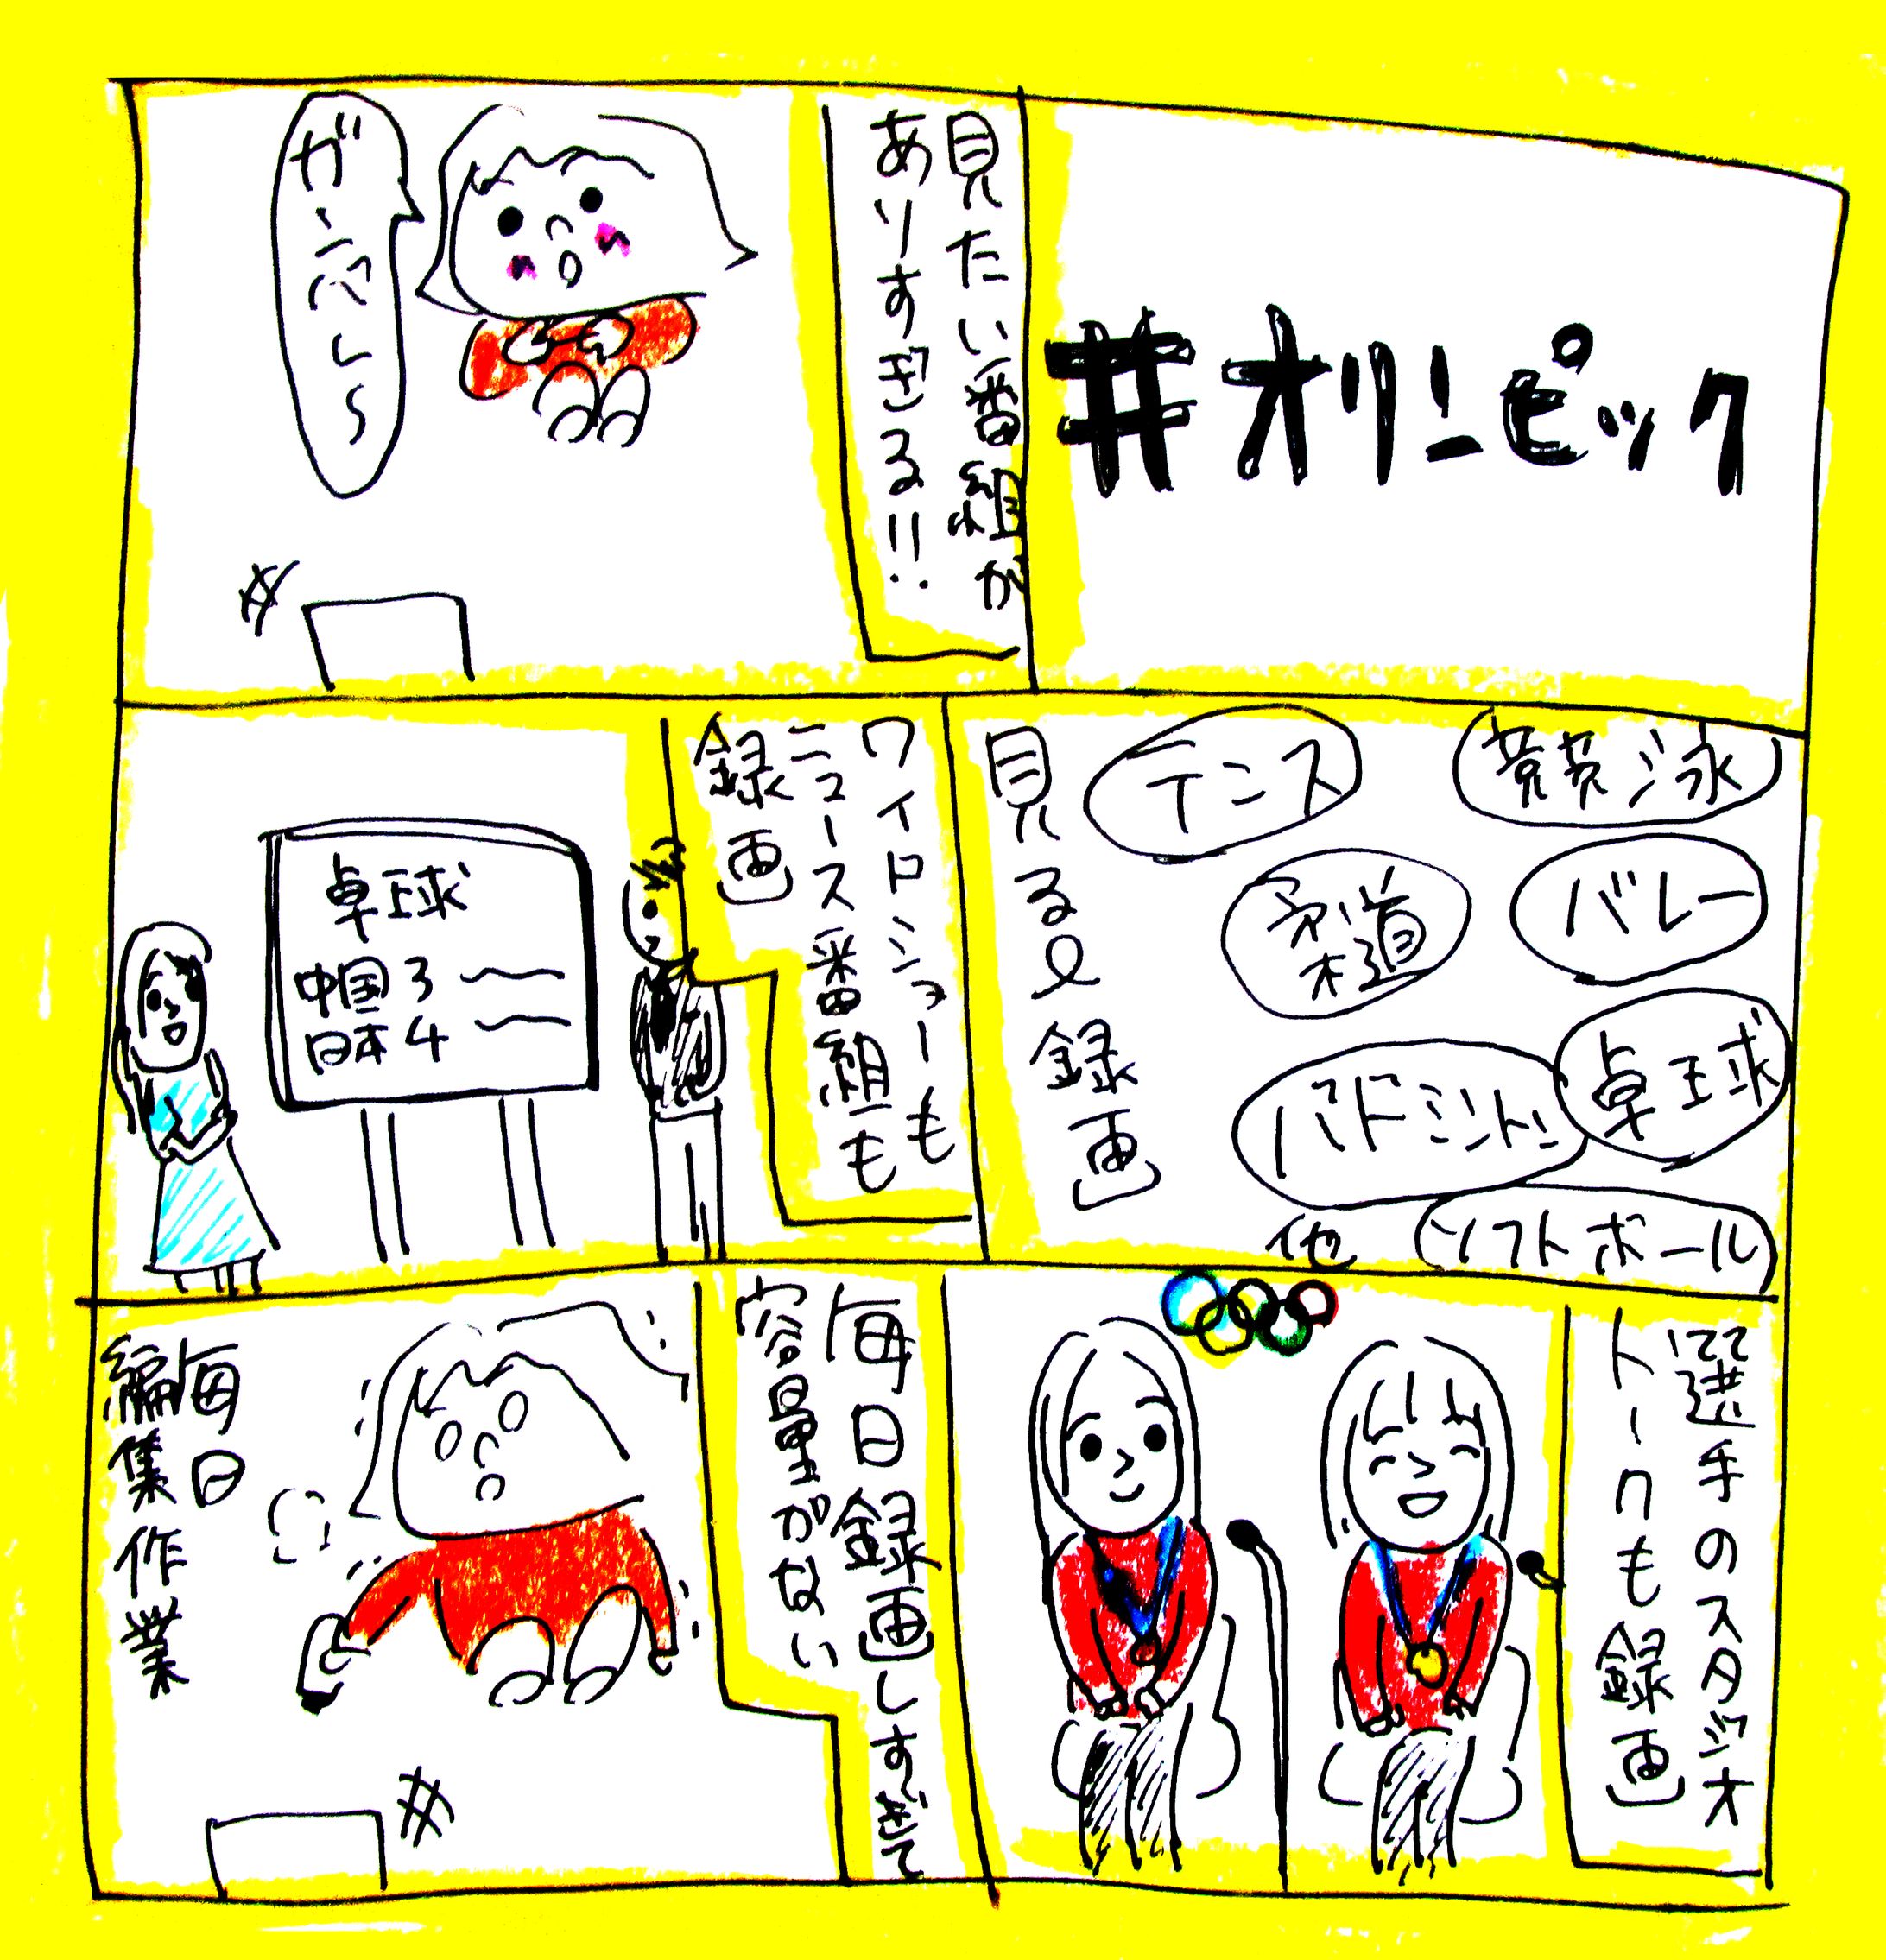 #オリンピック
見たい番組が
ありすぎる!!
競泳
テニス
バレー
柔道
卓球
バドミントン
ソフトボール
他
見る&録画
ワイドショーも
ニュース番組も
録画
卓球
中国 3
日本 4
選手のスタジオ
トークも録画
毎日録画しすぎて
容量がない
毎日
編集作業